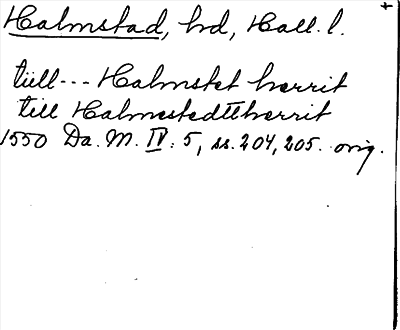 Halmstad, hd, Hall. l.
tiill--- Halmstet herrit
till Halmestedttherrit
1550 Da. M. IV: 5, ss. 204, 205. orig.